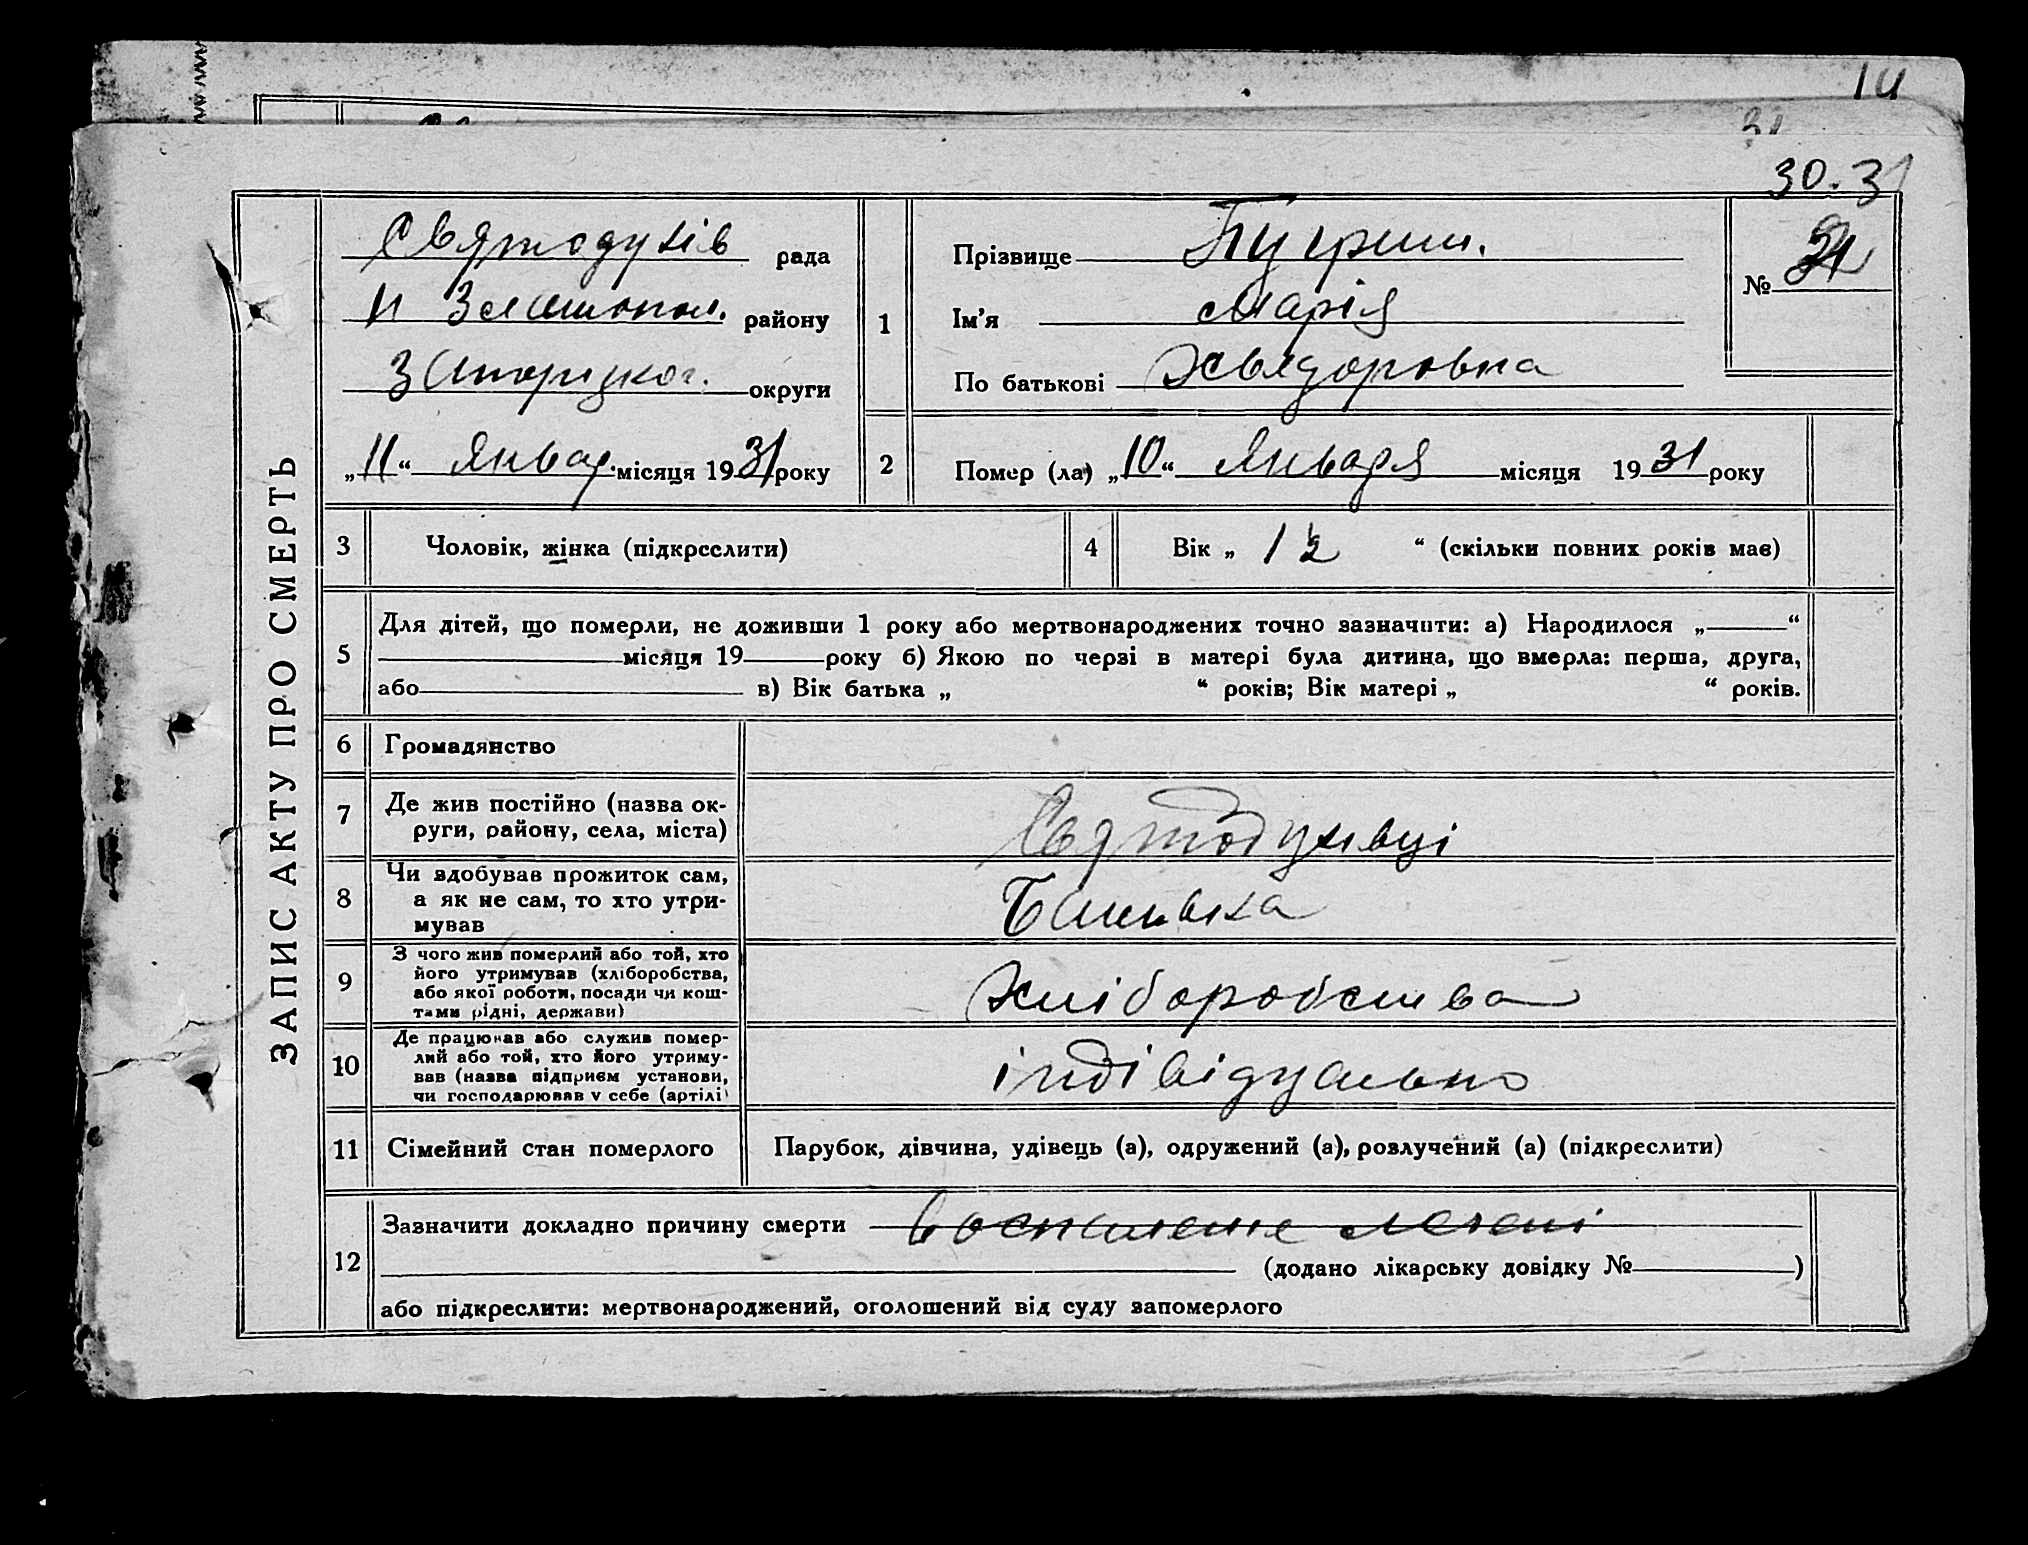 14
31
30.31
ЗАПИС АКТУ ПРО СМЕРТЬ
Святодухів рада
Н Златопол. району
округи
„11“ Январ. місяця 1931 року
1
Прізвище
Ім’я Марія
По батькові Хведоровна
№
2
Помер (ла) „10“ Января місяця 1931 року
3
Чоловік, жінка (підкреслити)
4
Вік „ 1½ “ (скільки повних років має)
5
Для дітей, що померли, не доживши 1 року або мертвонароджених точно зазначити: а) Народилося „ “
місяця 19 року б) Якою по черзі в матері була дитина, що вмерла: перша, друга,
або в) Вік батька „ “ років; Вік матері „ “ років.
6
Громадянство
7
Де жив постійно (назва ок-
руги, району, села, міста)
Святодухівці
8
Чи здобував прожиток сам,
а як не сам, то хто утри-
мував
Батька
9
З чого жив померлий або той, хто
його утримував (хліборобства,
або якої роботи, посади чи кош-
тами рідні, держави)
Хліборобства
10
Де працював або служив помер-
лий або той, хто його утриму-
вав (назва підприєм установи,
чи господарював у себе (артілі)
індівідуально
11
Сімейний стан померлого
Парубок, дівчина, удівець (а), одружений (а), розлучений (а) (підкреслити)
12
Зазначити докладно причину смерти воспаление легені
(додано лікарську довідку № )
або підкреслити: мертвонароджений, оголошений від суду запомерлого